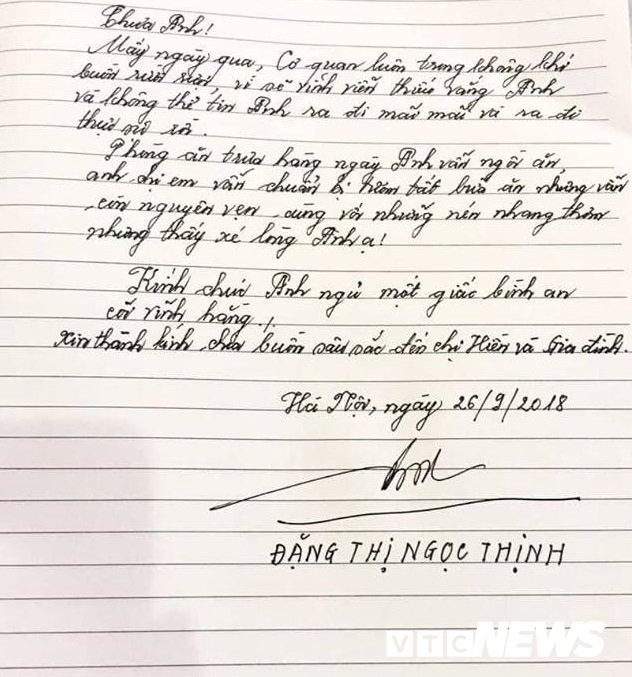 Thưa Anh!
Mấy ngày qua, Cơ quan luôn trong không khí
buồn rười rượi, vì sẽ vĩnh viễn thiếu vắng Anh
và không thể tin Anh ra đi mãi mãi và ra đi
thực sự rồi.
Phòng ăn trưa hàng ngày Anh vẫn ngồi ăn,
anh chị em vẫn chuẩn bị tươm tất bữa ăn nhưng vẫn
còn nguyên vẹn, cùng với những nén nhang thơm
nhưng thấy xé lòng Anh ạ!
Kính chúc Anh ngủ một giấc bình an
cõi vĩnh hằng!
Xin thành kính chia buồn sâu sắc đến chị Hiền và Gia đình.
Hà Nội, ngày 26/9/2018
ĐẶNG THỊ NGỌC THỊNH
VTC NEWS